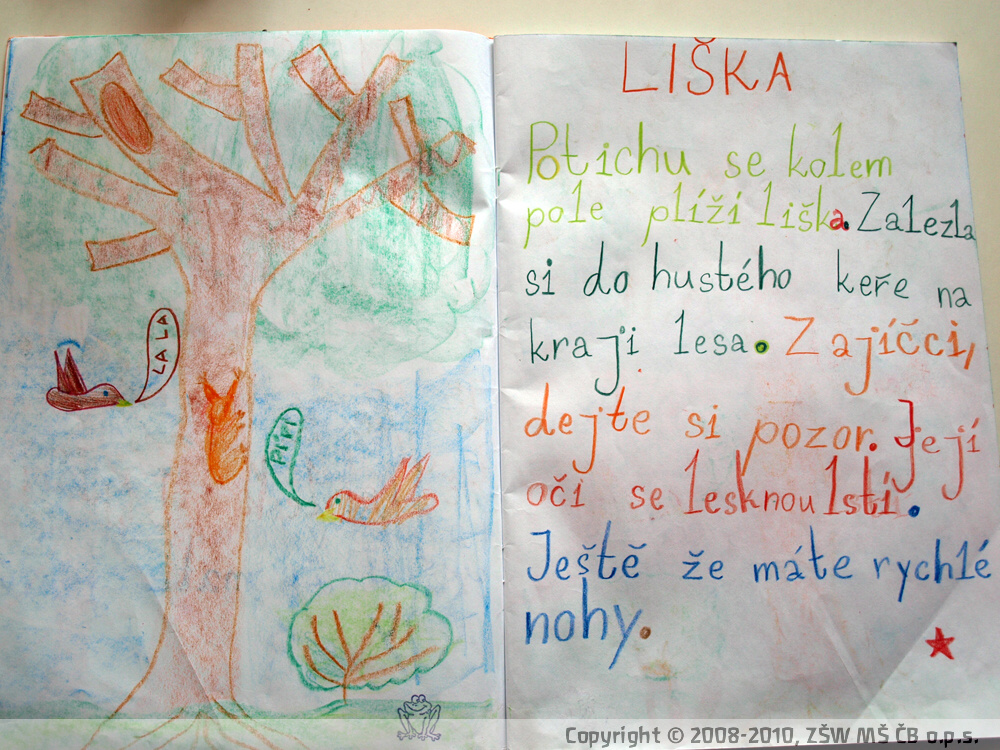 LA LA
PÍPÍ
LIŠKA
Potichu se kolem
pole plíží liška. Zalezla
si do hustého keře na
kraji lesa. Zajíčci,
dejte si pozor. Její
oči se lesknou lstí.
Ještě že máte rychlé
nohy.
Copyright © 2008-2010, ZŠW MŠ ČB o.p.s.